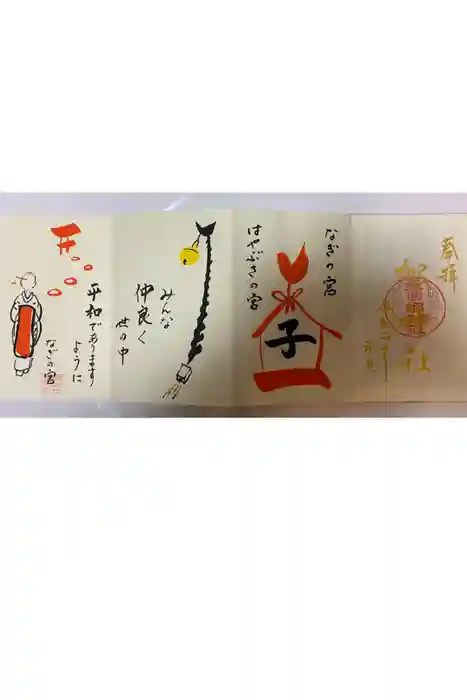 奉拝
なぎの宮
子
はやぶさの宮
みんな
仲良く
世の中
平和であります
ように
なぎの宮